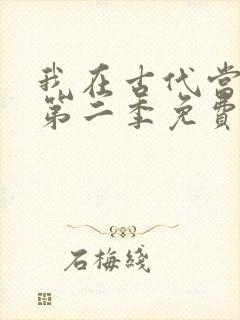 我在古代当
第二季免費
石梅綫